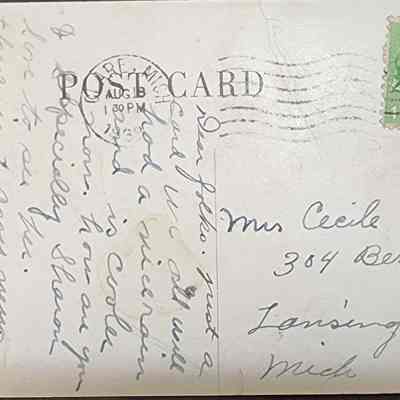 POST CARD
AUG 8
1 30 PM
Dear Folks. Just a
Card We all well
had a nice rain
and is cooler
now. how are you
& especially Sharon
love to see her.
Mrs Cecile
304 Be
Lansing
Mich